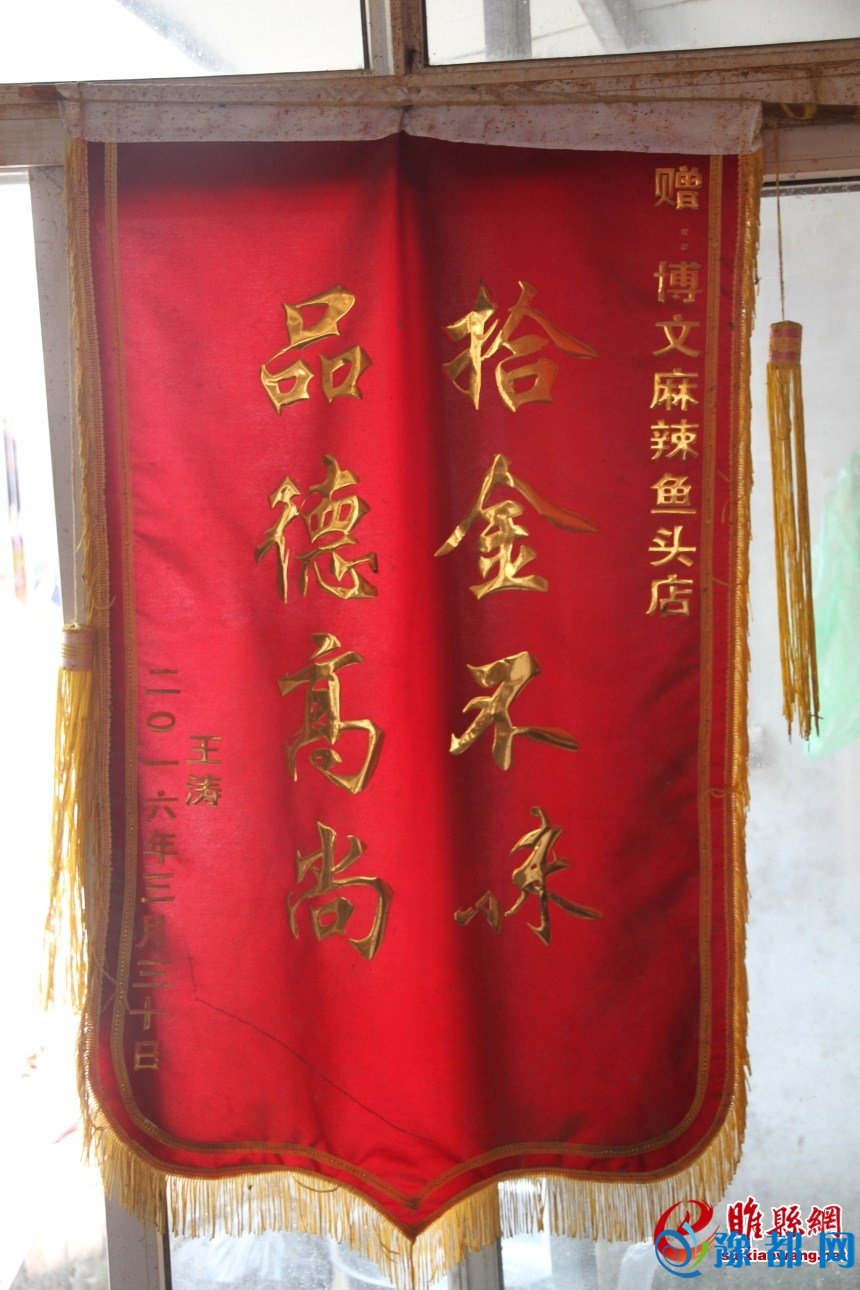 赠：博文麻辣鱼头店
拾金不昧
品德高尚
王涛
二〇一六年三月三十日
睢縣網
豫都网